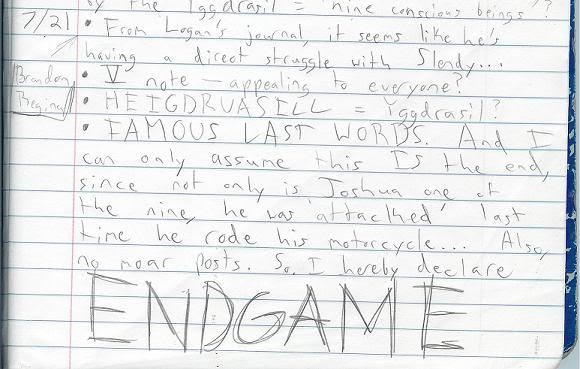 by the Iggdrasil = "nine conscious beings"?
7/21 • From Logan's journal, it seems like he's
having a direct struggle with Slendy...
Brandon Regina
• V note — appealing to everyone?
• HEIGDRVASILL = Yggdrasil?
• FAMOUS LAST WORDS. And I
can only assume this IS the end,
since not only is Joshua one of
the nine, he was 'attacked' last
time he rode his motorcycle... Also,
no moar posts. So, I hereby declare
ENDGAME